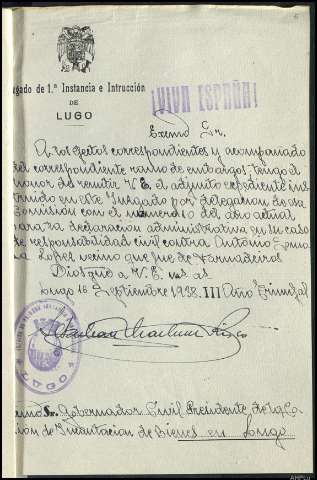 gado de 1.ª Instancia e Intrucción
DE
LUGO
¡VIVA ESPAÑA!
Excmo Sr.
A los efectos correspondientes y acompañado
del correspondiente ramo de embargos, tengo el
honor de remitir V.E. el adjunto expediente ins
truido en este Juzgado por delegacion de esa
Comisión con el numero 10 del año actual
para la declaracion administrativa en su caso
de responsabilidad civil contra Antonio
Lopez vecino que fue de
Dios gue a V. E. ms. as.
Lugo 16 Septiembre 1938. III Año Triunfal
LUGO
Sr. Gobernador Civil Presidente de la Co
ion de Incautacion de Bienes en Lugo